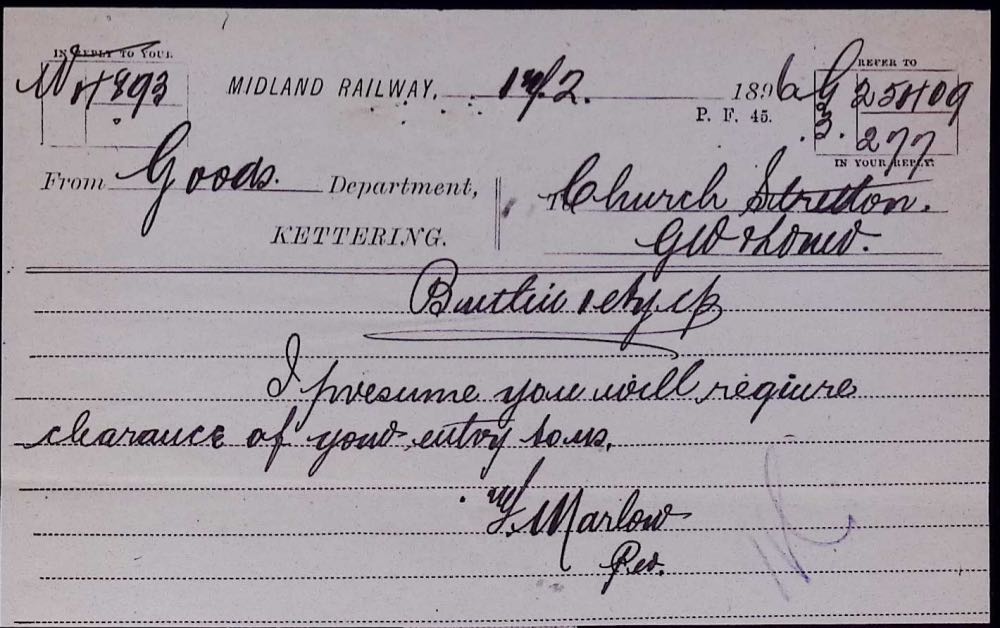 IN REPLY TO YOUR
N 4893
MIDLAND RAILWAY, 14/2. 1896
P. F. 45.
REFER TO
G 25409
3. 277
IN YOUR REPLY.
From Goods. Department,
KETTERING.
To Church Stretton.
GW &
I presume you will require
clearance of your entry
Marlow